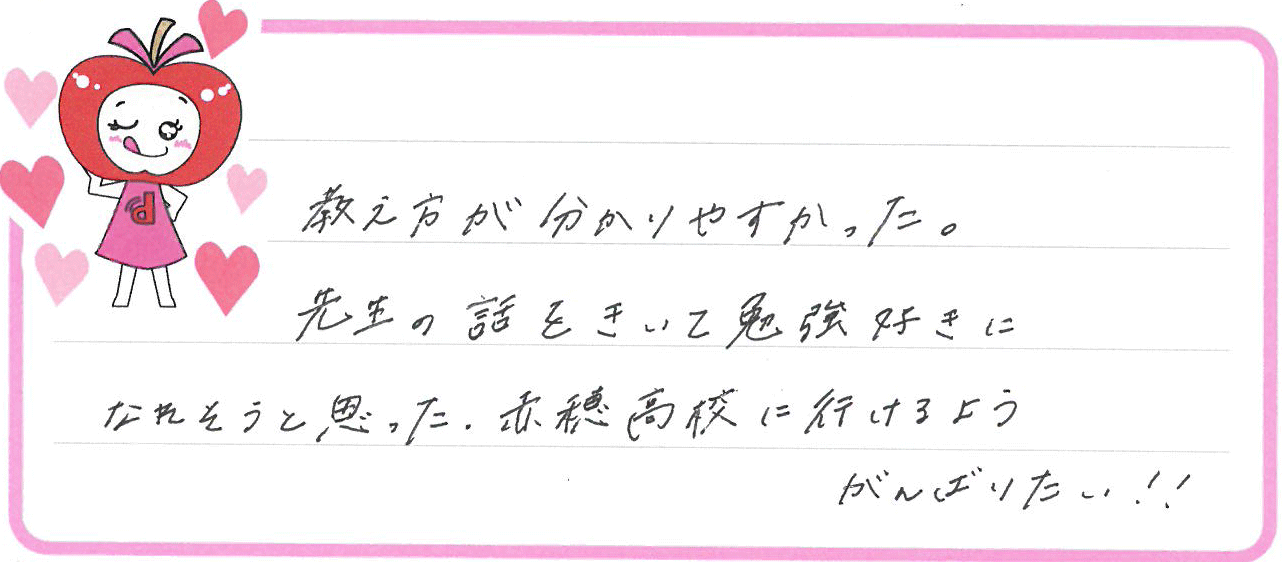 教え方が分かりやすかった。
先生の話をきいて勉強好きに
なれそうと思った.赤穂高校に行けるよう
がんばりたい!!